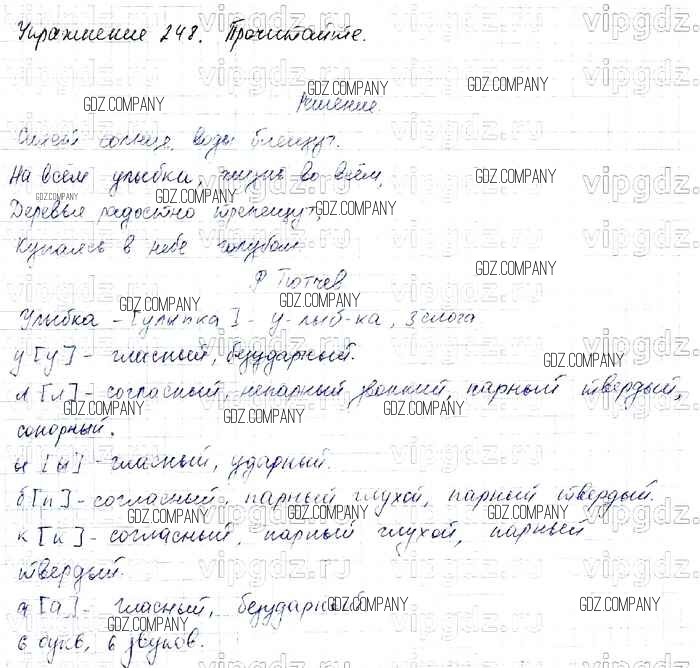 Упражнение 248. Прочитайте.
Решение.
Сияет солнце, воды блещут.
На всём улыбка, жизнь во всём,
Деревья радостно трепещут,
Купаясь в небе голубом.
Ф Тютчев
Улыбка - [улыпка] - у-лыб-ка, 3 слога
у [у] - гласный, безударный.
л [л] - согласный, непарный звонкий, парный твердый,
сонорный.
ы [ы] - гласный, ударный.
б [п] - согласный, парный глухой, парный твердый.
к [к] - согласный, парный глухой, парный
твердый.
а [а] - гласный, безударный
6 букв, 6 звуков.
GDZ.COMPANY
vipgdz.ru